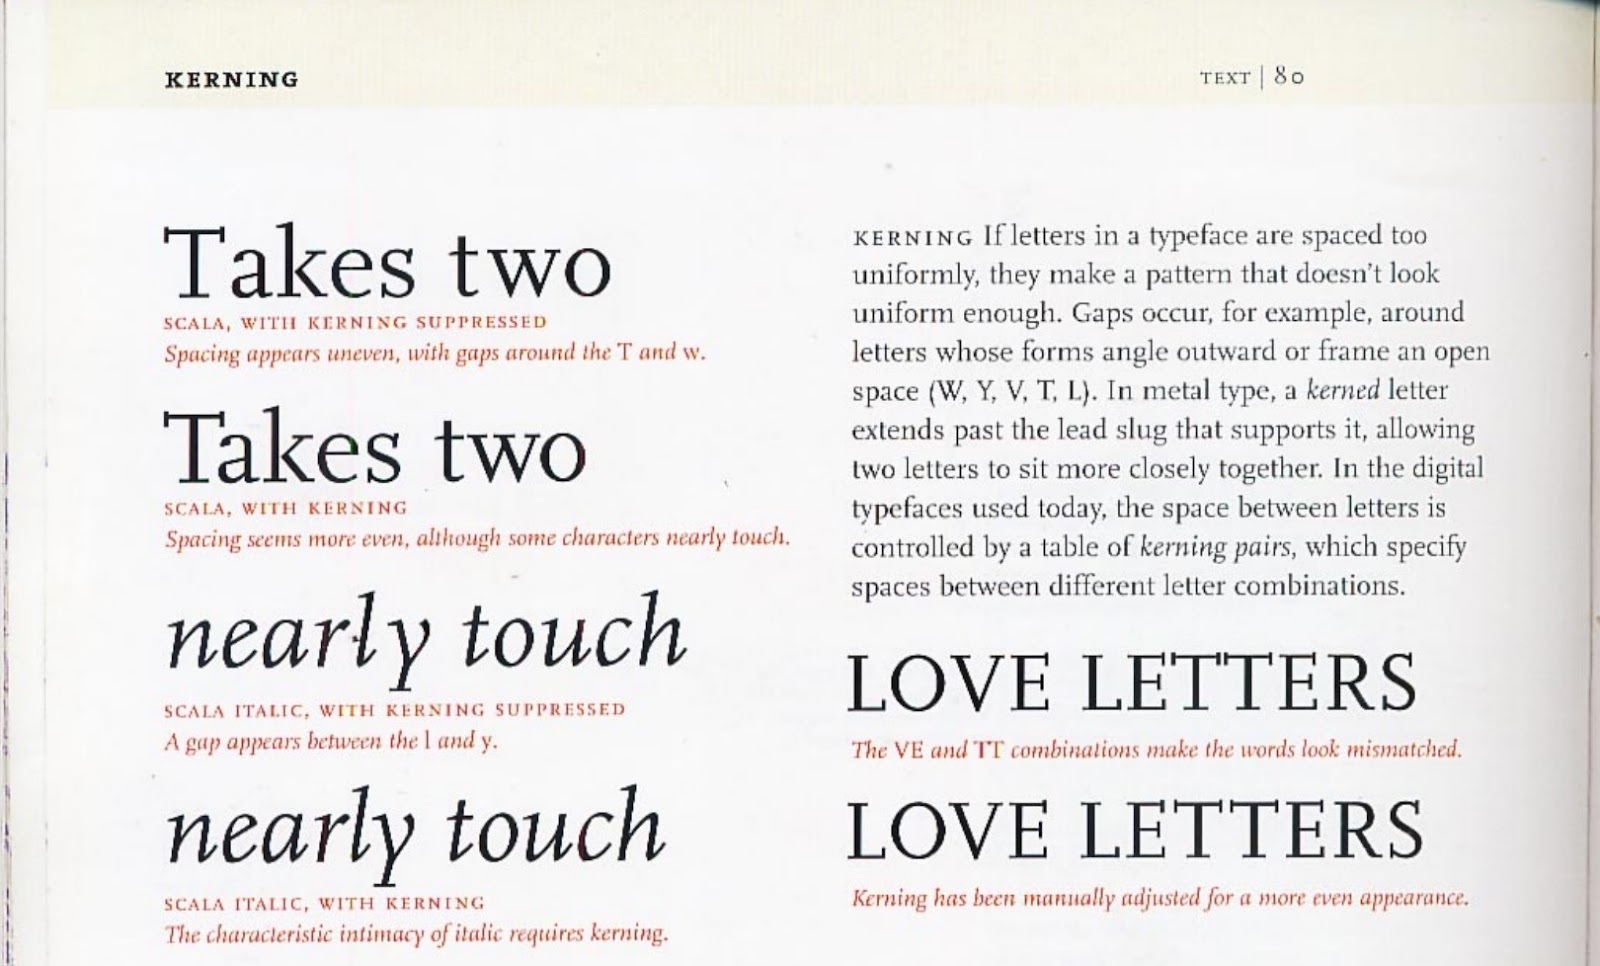 KERNING
TEXT | 80
Takes two
SCALA, WITH KERNING SUPPRESSED
Spacing appears uneven, with gaps around the T and w.
Takes two
SCALA, WITH KERNING
Spacing seems more even, although some characters nearly touch.
nearly touch
SCALA ITALIC, WITH KERNING SUPPRESSED
A gap appears between the l and y.
nearly touch
SCALA ITALIC, WITH KERNING
The characteristic intimacy of italic requires kerning.
KERNING If letters in a typeface are spaced too
uniformly, they make a pattern that doesn't look
uniform enough. Gaps occur, for example, around
letters whose forms angle outward or frame an open
space (W, Y, V, T, L). In metal type, a kerned letter
extends past the lead slug that supports it, allowing
two letters to sit more closely together. In the digital
typefaces used today, the space between letters is
controlled by a table of kerning pairs, which specify
spaces between different letter combinations.
LOVE LETTERS
The VE and TT combinations make the words look mismatched.
LOVE LETTERS
Kerning has been manually adjusted for a more even appearance.